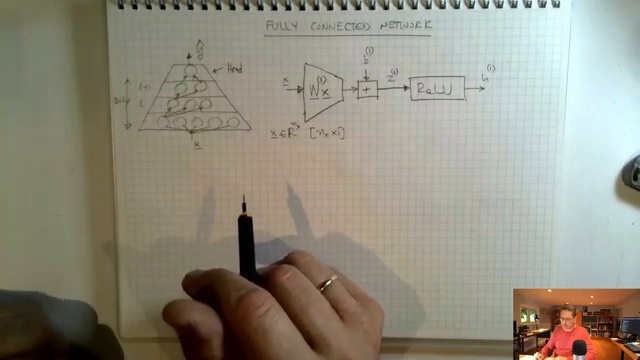 FULLY CONNECTED NETWORK
ŷ
Head
x
x
W⁽¹⁾x
b⁽¹⁾
+
z⁽¹⁾
ReLU
h⁽¹⁾
x ∈ R^nₓ [nₓ×1]